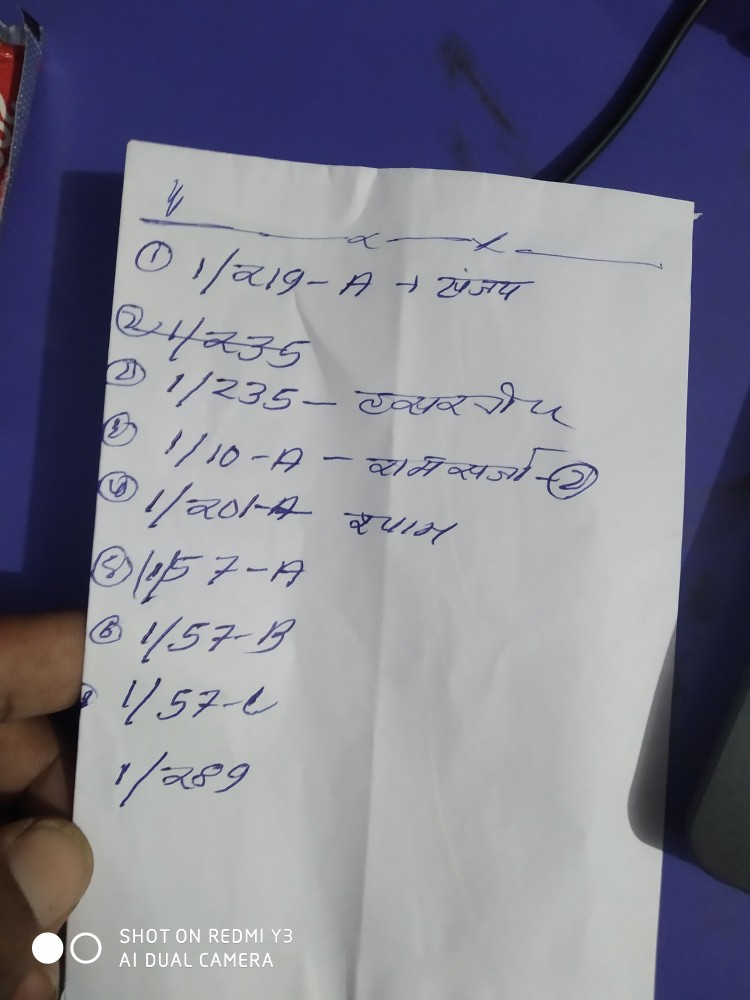 ① 1/219-A → संजय
② 1/235
② 1/235 -
③ 1/10-A - राम सजी - ②
④ 1/201-A श्याम
⑤ 1/57-A
⑥ 1/57-B
1/57-C
1/289
SHOT ON REDMI Y3
AI DUAL CAMERA